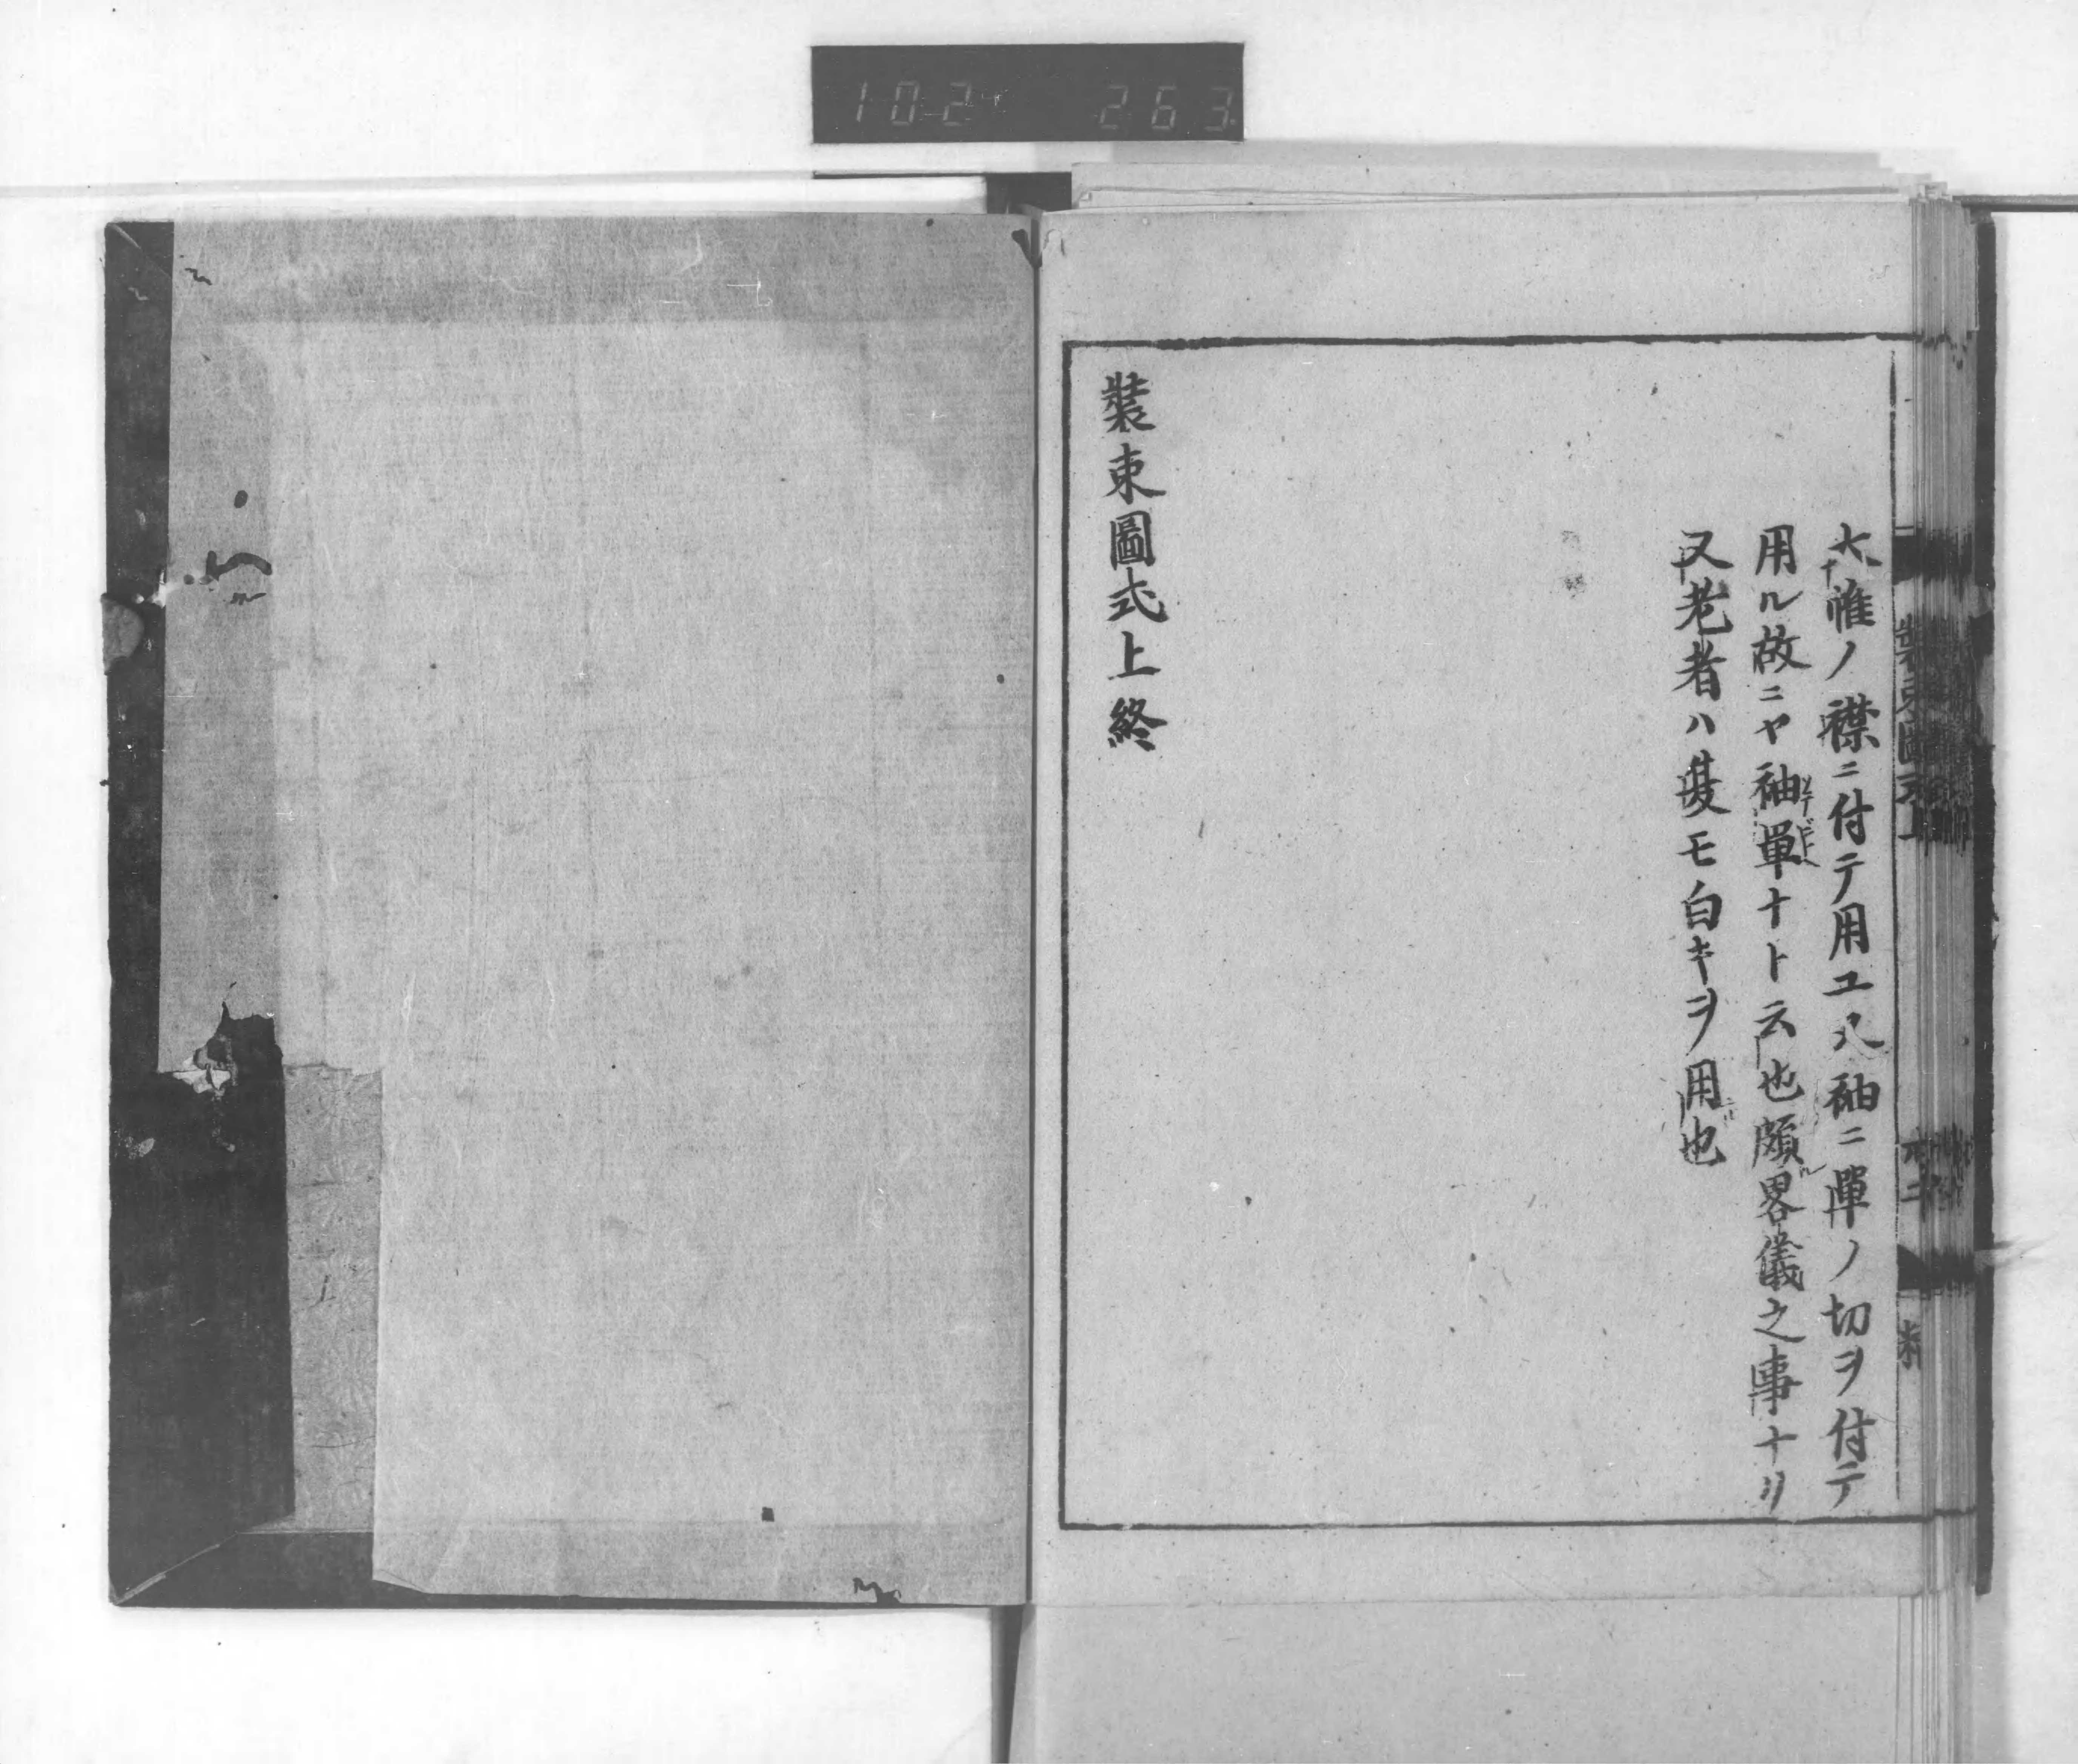 10-2 263
大帷ノ襟ニ付テ用ユ又袖ニ單ノ切ヲ付テ
用ル故ニヤ袖單ナト云也頗畧儀之事ナリ
又老者ハ裝モ白キヲ用也
裝束圖式上終
裝束圖式上